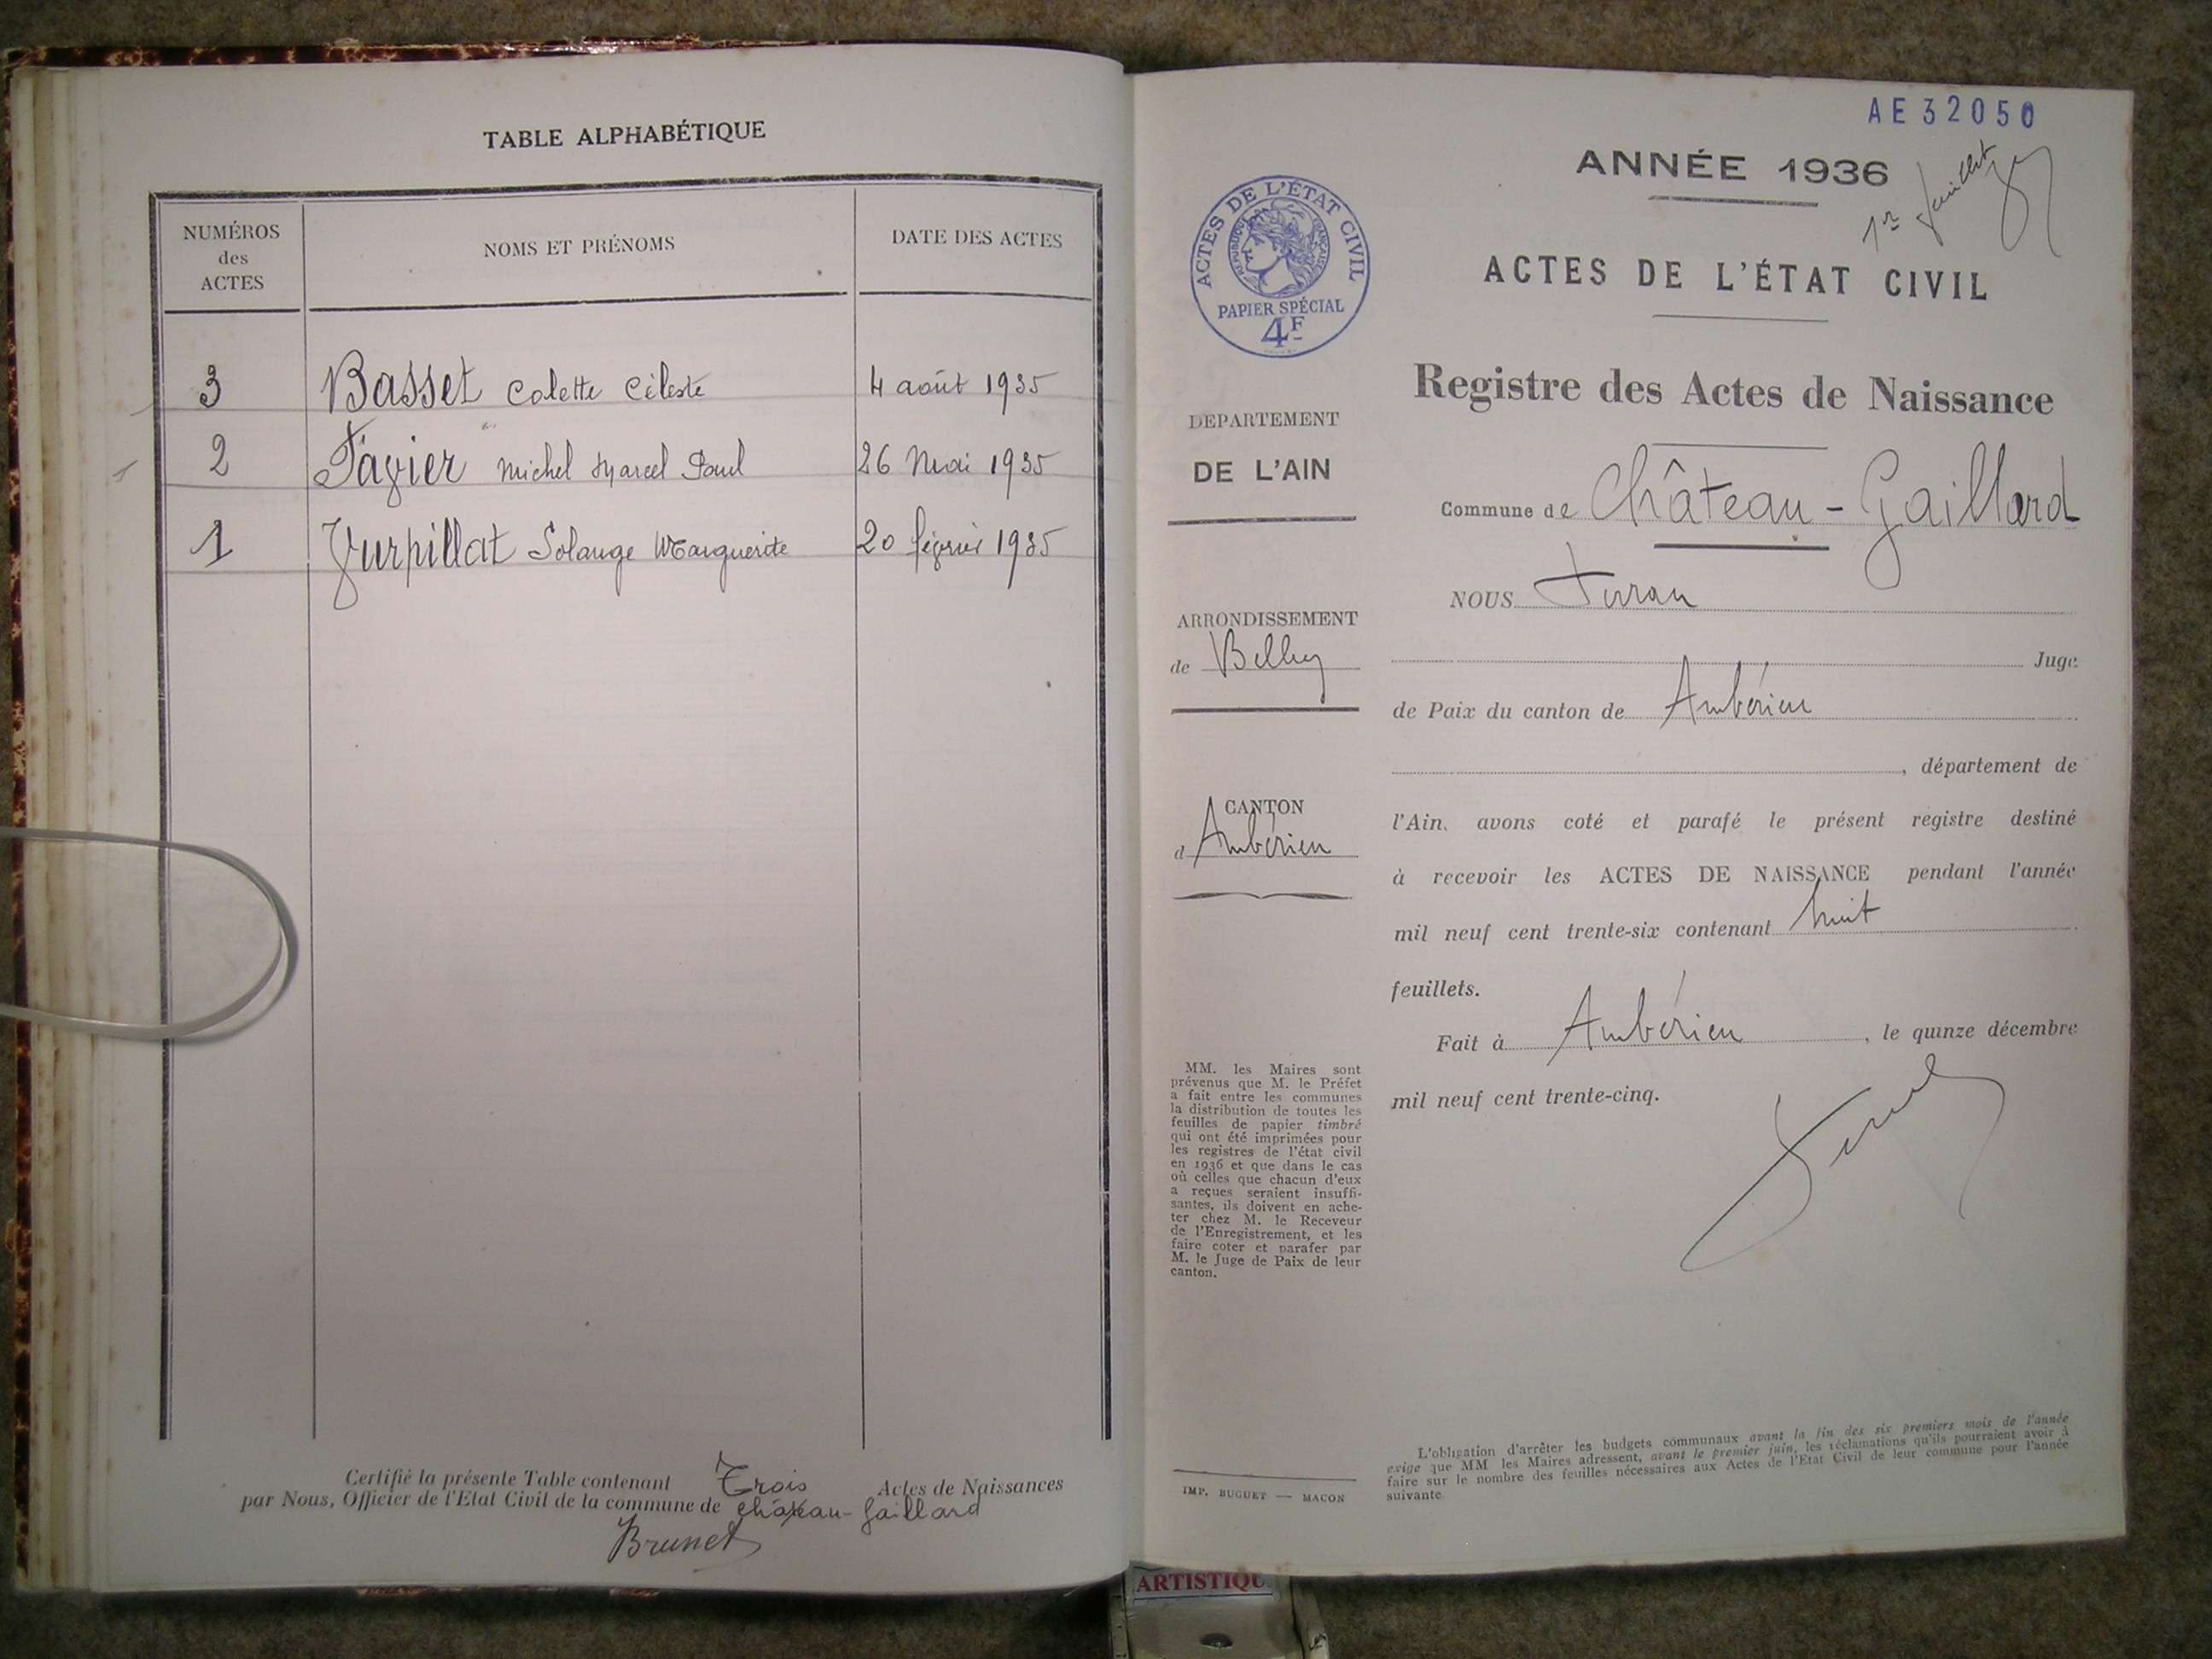 TABLE ALPHABÉTIQUE
NUMÉROS des ACTES
NOMS ET PRÉNOMS
DATE DES ACTES
3 Basset Colette Céleste 4 août 1935
2 Favier Michel Marcel Paul 26 Mai 1935
1 Vurpillat Solange Marguerite 20 février 1935
Certifié la présente Table contenant Trois Actes de Naissances
par Nous, Officier de l'Etat Civil de la commune de Château-Gaillard
Brunet
AE32050
ANNÉE 1936
1er Juillet
ACTES DE L'ÉTAT CIVIL
ACTES DE L'ÉTAT CIVIL
RÉPUBLIQUE FRANÇAISE
PAPIER SPÉCIAL
4F
Registre des Actes de Naissance
DEPARTEMENT
DE L'AIN
Commune de Château-Gaillard
ARRONDISSEMENT
de Belley
CANTON
d Ambérieu
NOUS
Juge
de Paix du canton de Ambérieu
, département de
l'Ain, avons coté et parafé le présent registre destiné
à recevoir les ACTES DE NAISSANCE pendant l'année
mil neuf cent trente-six contenant huit
feuillets.
Fait à Ambérieu, le quinze décembre
mil neuf cent trente-cinq.
MM. les Maires sont
prévenus que M. le Préfet
a fait entre les communes
la distribution de toutes les
feuilles de papier timbré
qui ont été imprimées pour
les registres de l'état civil
en 1936 et que dans le cas
où celles que chacun d'eux
a reçues seraient insuffi-
santes, ils doivent en ache-
ter chez M. le Receveur
de l'Enregistrement, et les
faire coter et parafer par
M. le Juge de Paix de leur
canton.
IMP. BUGUET — MACON
L'obligation d'arrêter les budgets communaux avant la fin des six premiers mois de l'année
exige que MM les Maires adressent, avant le premier juin, les réclamations qu'ils pourraient avoir à
faire sur le nombre des feuilles nécessaires aux Actes de l'Etat Civil de leur commune pour l'année
suivante
ARTISTIQU